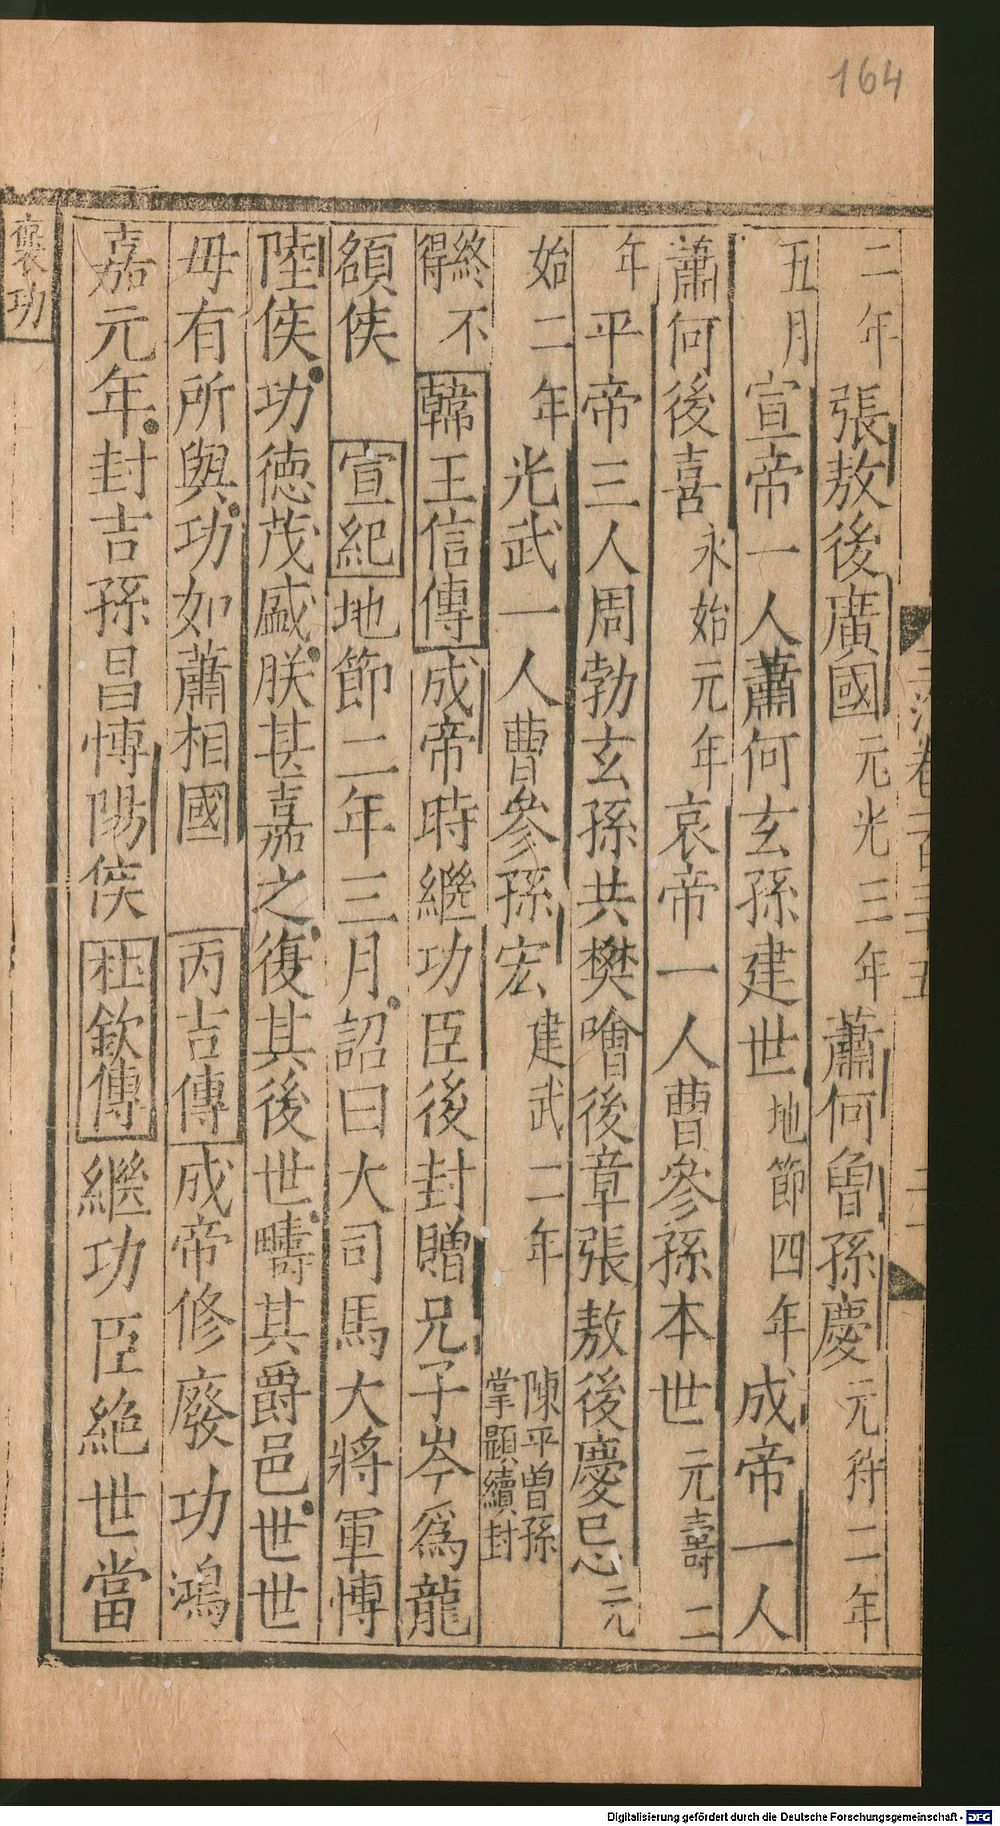 164
二年張敖後廣國元光三年蕭何曾孫慶元狩二年
五月宣帝一人蕭何玄孫建世地節四年成帝一人
蕭何後喜永始元年哀帝一人曹參孫本世元壽二
年平帝三人周勃玄孫共樊噲後章張敖後慶忌元
始二年光武一人曹參孫宏建武二年陳平曾孫掌顯續封
終不得韓王信傳成帝時繼功臣後封贈兄子岑爲龍
頟侯 宣紀地節二年三月詔曰大司馬大將軍博
陸侯功德茂盛朕甚嘉之復其後世疇其爵邑世世
毋有所與功如蕭相國 丙吉傳成帝修廢功鴻
嘉元年封吉孫昌博陽侯杜欽傳繼功臣絶世當
襃功
Digitalisierung gefördert durch die Deutsche Forschungsgemeinschaft - DFG